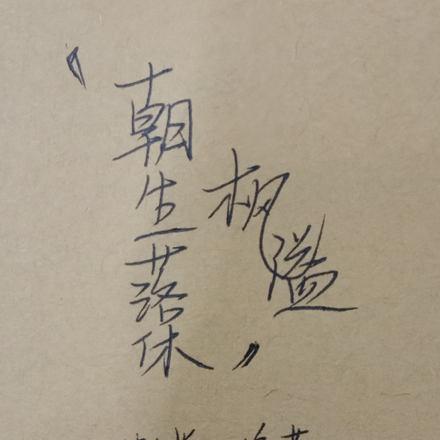 “朝生落休
枫溢”